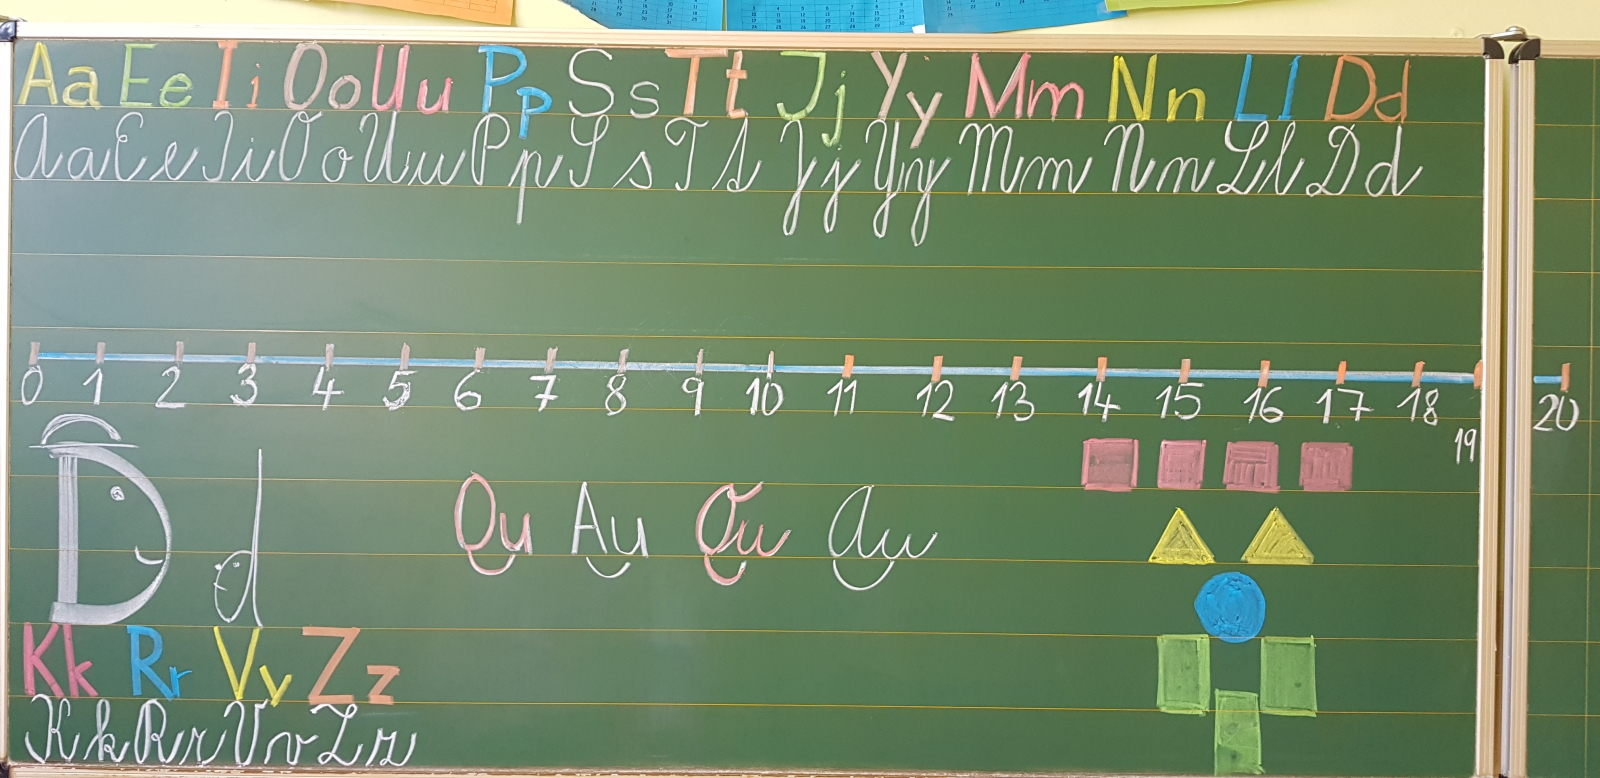 Aa Ee Ii Oo Uu Pp Ss Tt Jj Yy Mm Nn Ll Dd
Aa Ee Ii Oo Uu Pp Ss Tt Jj Yy Mm Nn Ll Dd
0 1 2 3 4 5 6 7 8 9 10 11 12 13 14 15 16 17 18 19 20
D d
Ou Au Ou Au
Kk Rr Vv Zz
Kk Rr Vv Zz